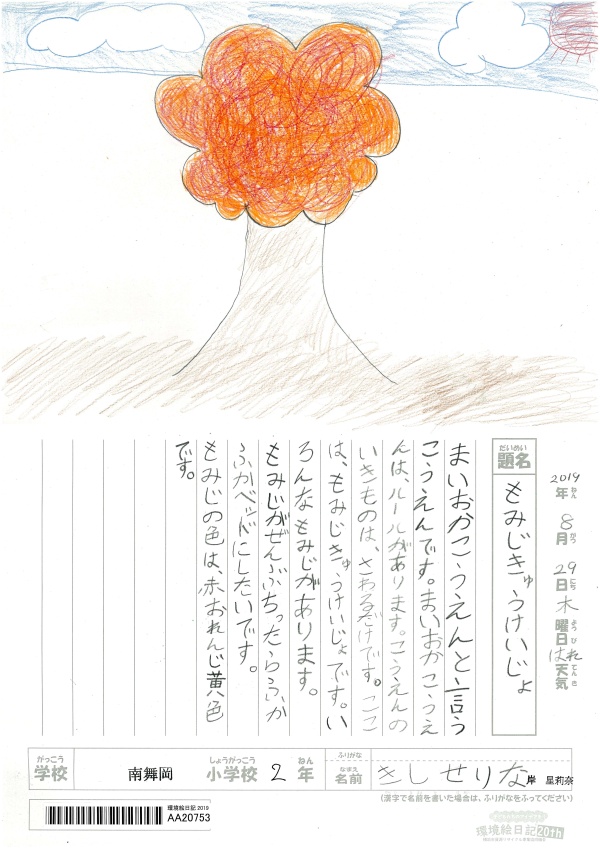 2019年ねん 8月がつ 29日にち 木曜日ようび はれ天気てんき
だいめい
題名
もみじきゅうけいじょ
まいおかこうえんと言う
こうえんです。まいおかこうえ
んは、ルールがあります。こうえんの
いきものは、さわるだけです。ここ
は、もみじきゅうけいじょです。い
ろんなもみじがあります。
もみじがぜんぶちったらふか
ふかベッドにしたいです。
もみじの色は、赤おれんじ黄色
です。
がっこう
学校
南舞岡
しょうがっこう
小学校
2
ねん
年
ふりがな
なまえ
名前
きし せりな
岸 星莉奈
(漢字で名前を書いた場合は、ふりがなをふってください)
環境絵日記 2019
AA20753
環境絵日記20th